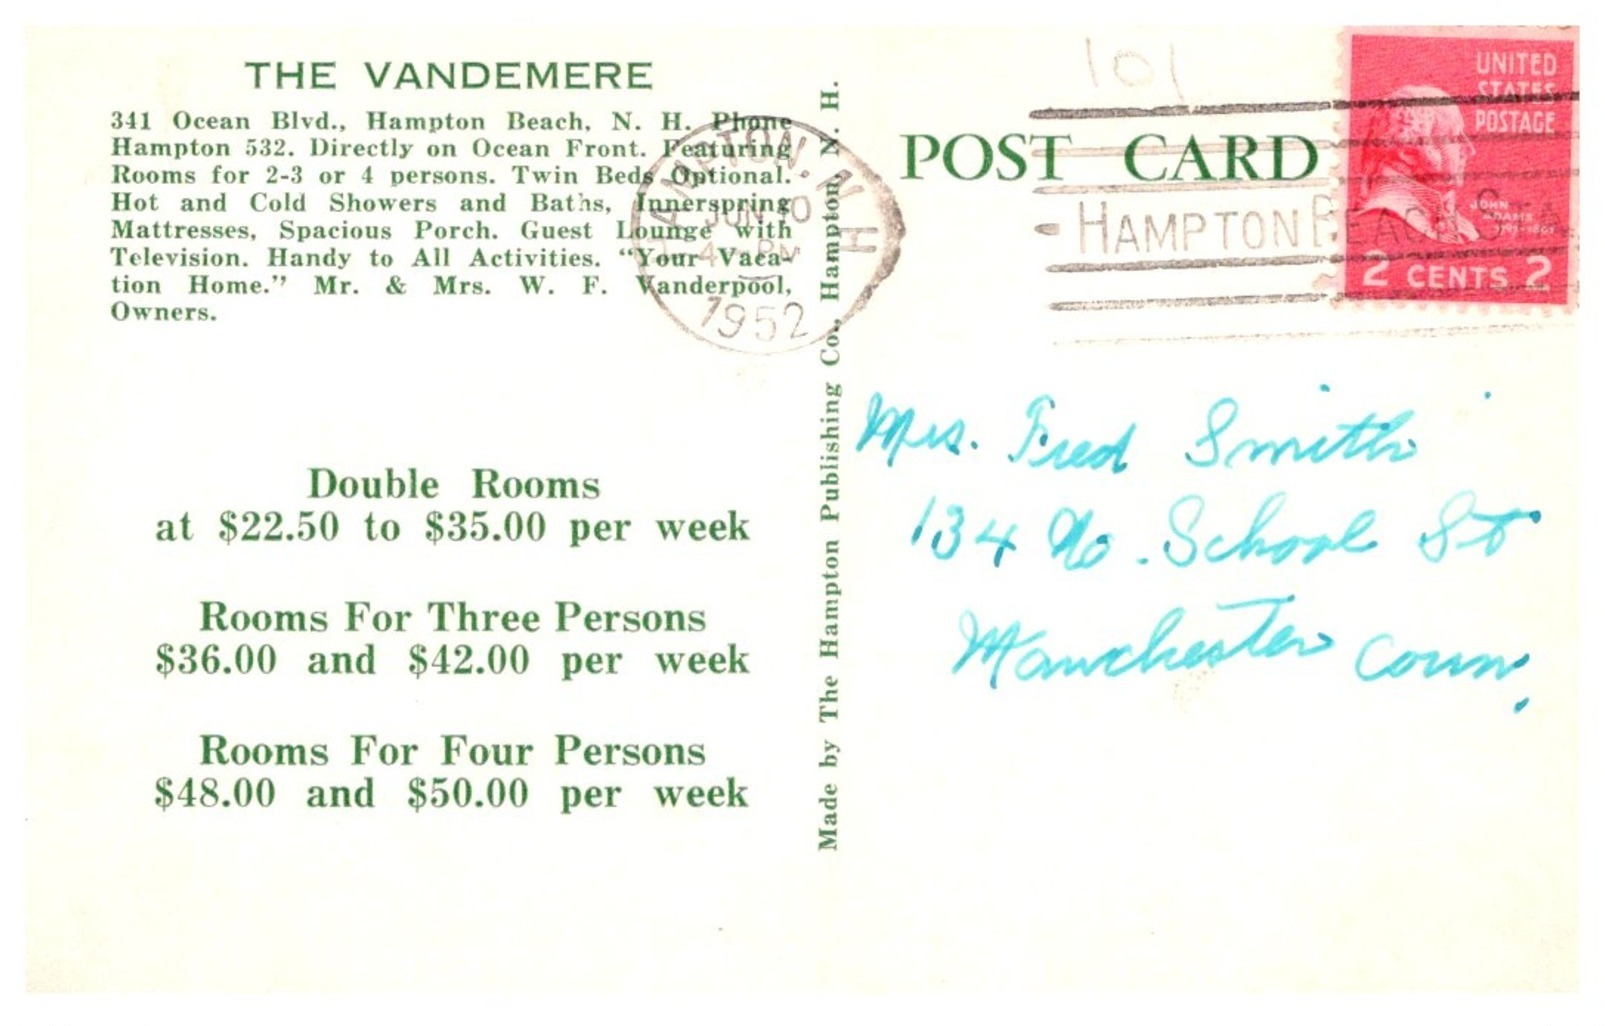 THE VANDEMERE
341 Ocean Blvd., Hampton Beach, N. H. Phone
Hampton 532. Directly on Ocean Front. Featuring
Rooms for 2-3 or 4 persons. Twin Beds Optional.
Hot and Cold Showers and Baths, Innerspring
Mattresses, Spacious Porch. Guest Lounge with
Television. Handy to All Activities. "Your Vaca-
tion Home." Mr. & Mrs. W. F. Vanderpool,
Owners.
Double Rooms
at $22.50 to $35.00 per week
Rooms For Three Persons
$36.00 and $42.00 per week
Rooms For Four Persons
$48.00 and $50.00 per week
Made by The Hampton Publishing Co., Hampton, N. H.
HAMPTON, N H
JUN 10
PM
1952
101
POST CARD
HAMPTON BEACH
UNITED
STATES
POSTAGE
JOHN
ADAMS
1797-1801
2 CENTS 2
Mrs. Fred Smith
134 No. School St
Manchester Conn.